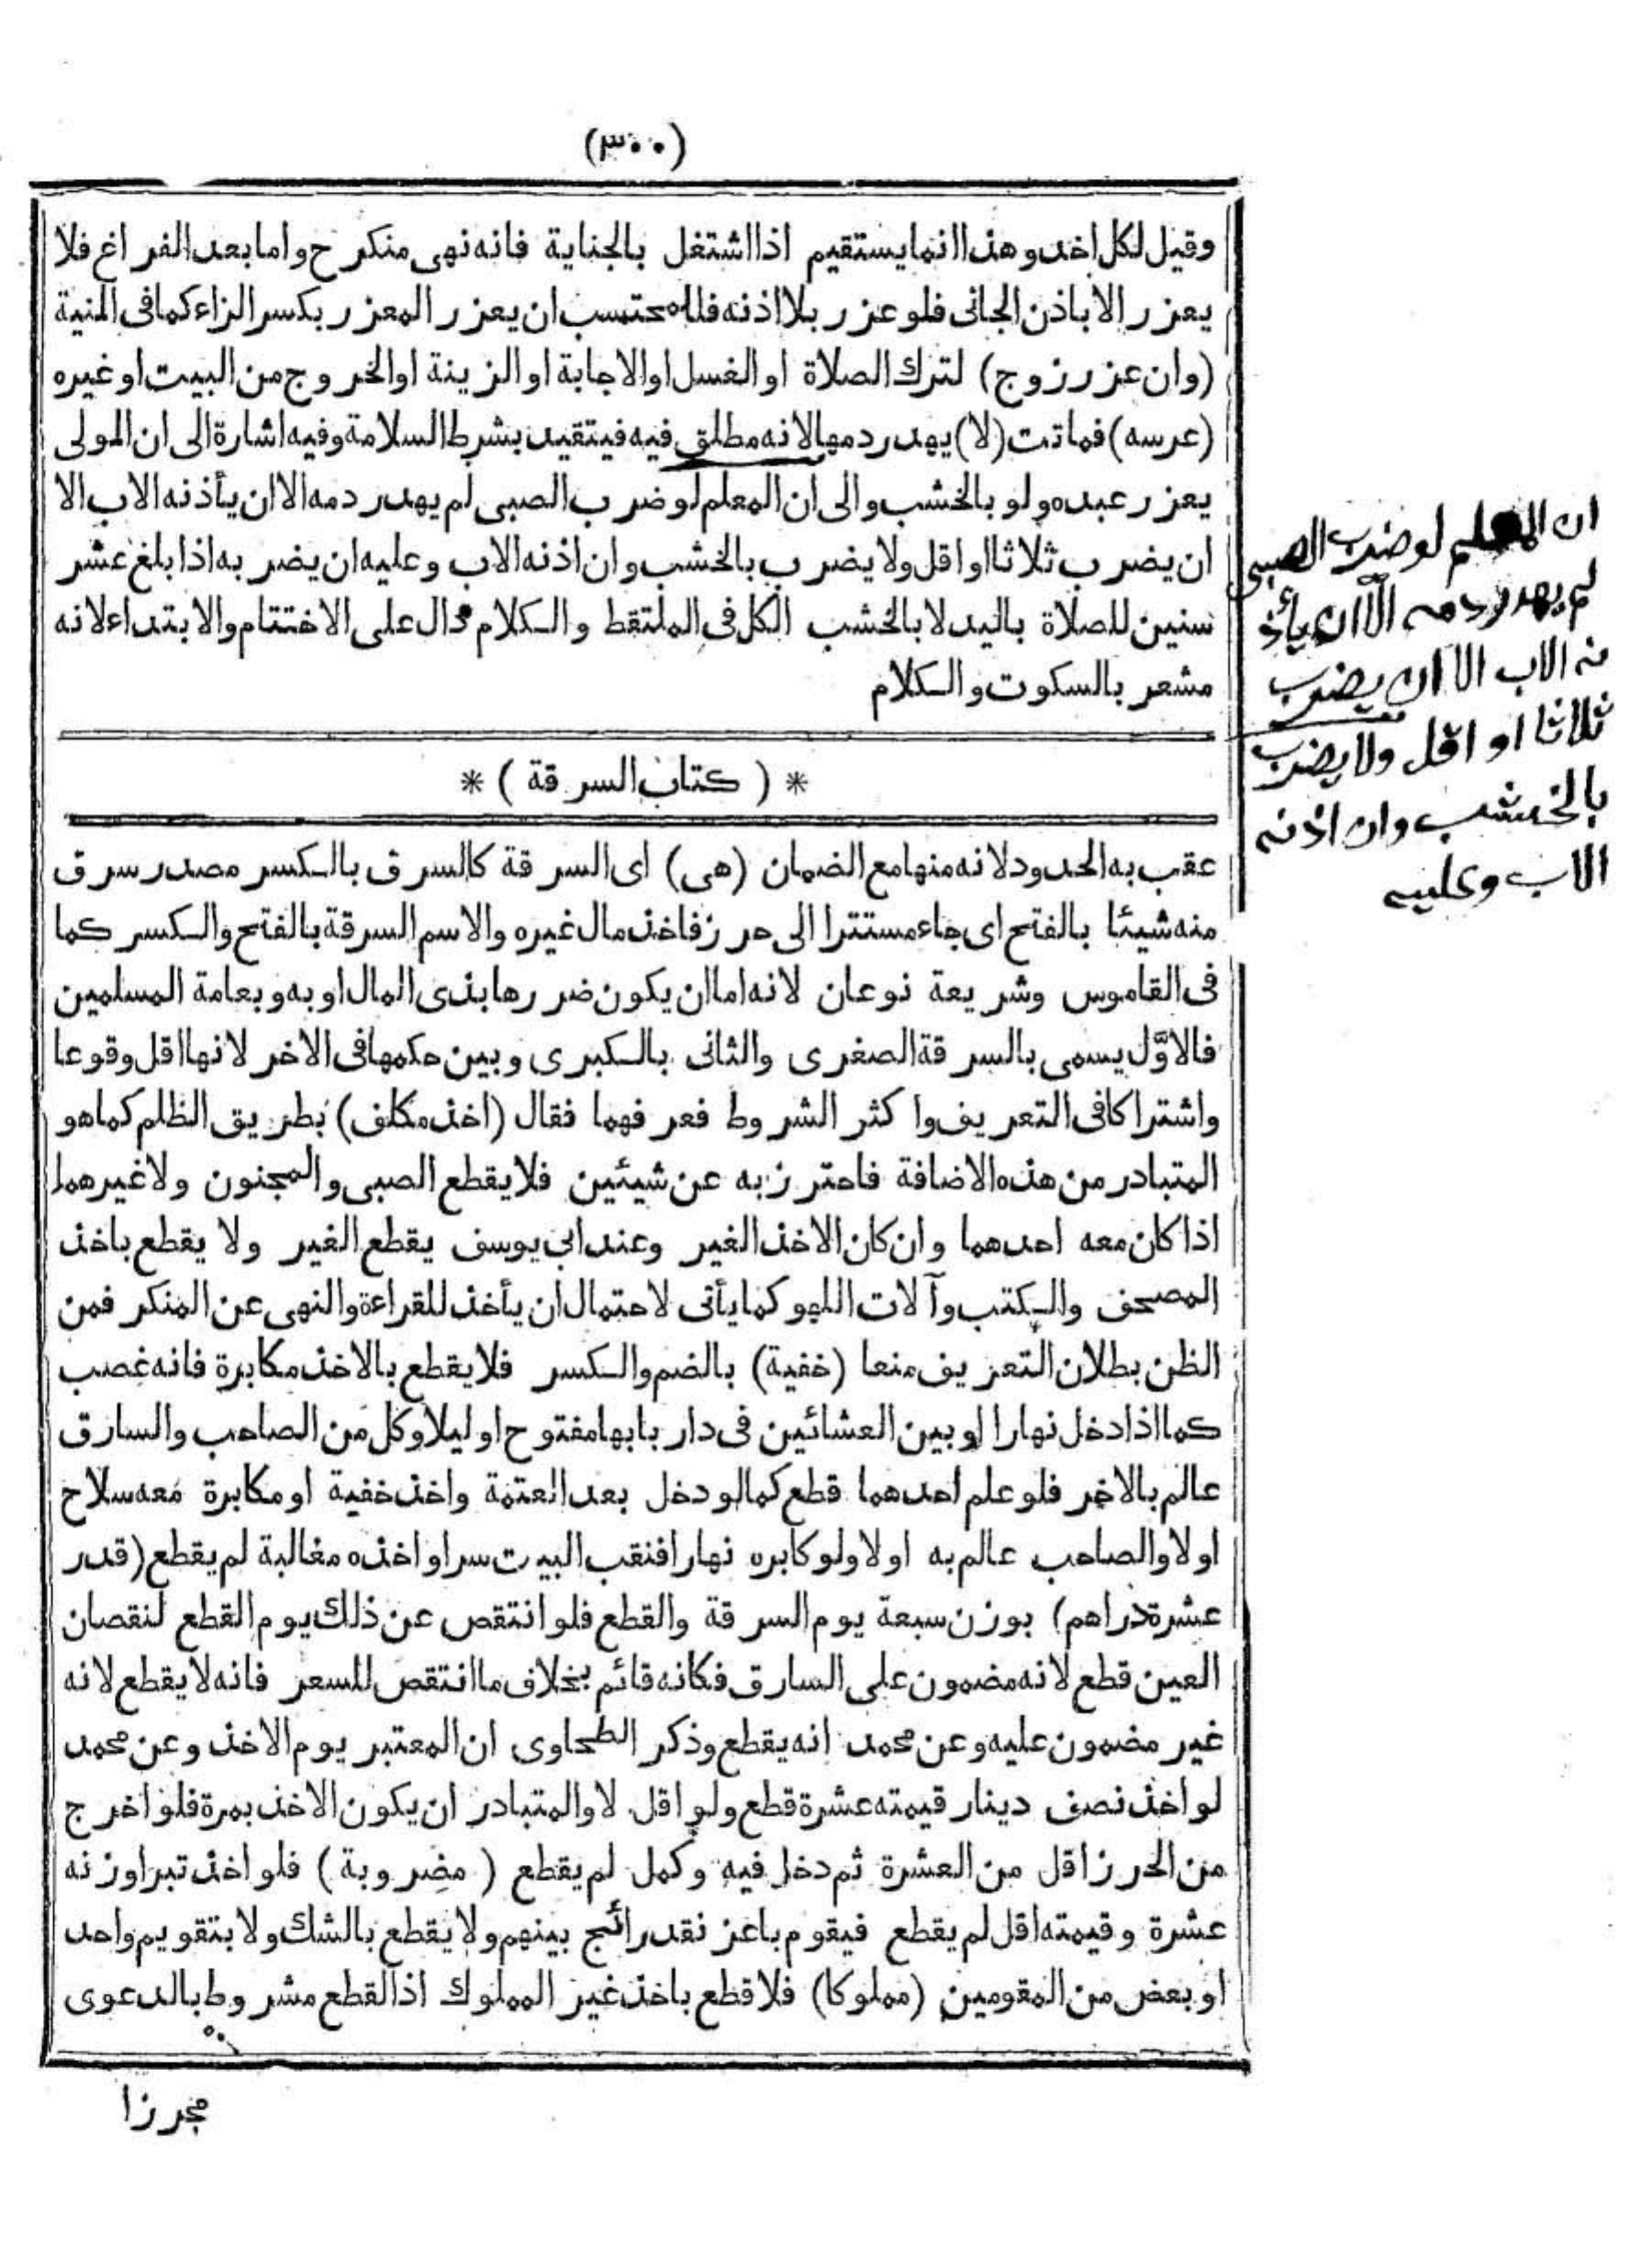 (٣٠٠)
وقيل لكل اخذ وهذا انما يستقيم اذا اشتغل بالجناية فانه نهى منكر ح واما بعد الفراغ فلا
يعزر الا باذن الجانى فلو عزر بلا اذنه فللمحتسب ان يعزر المعزر بكسر الزاء كما فى المنية
(وان عزر زوج) لترك الصلاة او الغسل او الاجابة او الزينة او الخروج من البيت او غيره
(عرسه) فماتت (لا) يهدر دمها لانه مطلق فيه فيتقيد بشرط السلامة وفيه اشارة الى ان المولى
يعزر عبده ولو بالخشب والى ان المعلم لو ضرب الصبى لم يهدر دمه الا ان يأذنه الاب الا
ان يضرب ثلاثا او اقل ولا يضرب بالخشب وان اذنه الاب وعليه ان يضربه اذا بلغ عشر
سنين للصلاة باليد لا بالخشب الكل فى الملتقط والكلام دال على الاختتام والابتداء لانه
مشعر بالسكوت والكلام
* ( كتاب السرقة ) *
عقب به الحدود لانه منها مع الضمان (هى) اى السرقة كالسرق بالكسر مصدر سرق
منه شيئا بالفتح اى جاء مستترا الى حرز فاخذ مال غيره والاسم السرقة بالفتح والكسر كما
فى القاموس وشريعة نوعان لانه اما ان يكون ضررها بذى المال او به وبعامة المسلمين
فالاوّل يسمى بالسرقة الصغرى والثانى بالكبرى وبين حكمها فى الاخر لانها اقل وقوعا
واشتراكا فى التعريف واكثر الشروط فعرفهما فقال (اخذ مكلف) بطريق الظلم كما هو
المتبادر من هذه الاضافة فاحترز به عن شيئين فلا يقطع الصبى والمجنون ولا غيرهما
اذا كان معه احدهما وان كان الاخذ الغير وعند ابى يوسف يقطع الغير ولا يقطع باخذ
المصحف والكتب وآلات اللهو كما يأتى لاحتمال ان يأخذ للقراءة والنهى عن المنكر فمن
الظن بطلان التعريف منعا (خفية) بالضم والكسر فلا يقطع بالاخذ مكابرة فانه غصب
كما اذا دخل نهارا او بين العشائين فى دار بابها مفتوح او ليلا وكل من الصاحب والسارق
عالم بالاخر فلو علم احدهما قطع كما لو دخل بعد العتمة واخذ خفية او مكابرة معه سلاح
او لا والصاحب عالم به او لا ولو كابره نهارا فنقب البيت سرا واخذه مغالبة لم يقطع (قدر
عشرة دراهم) بوزن سبعة يوم السرقة والقطع فلو انتقص عن ذلك يوم القطع لنقصان
العين قطع لانه مضمون على السارق فكانه قائم بخلاف ما انتقص للسعر فانه لا يقطع لانه
غير مضمون عليه وعن محمد انه يقطع وذكر الطحاوى ان المعتبر يوم الاخذ وعن محمد
لو اخذ نصف دينار قيمته عشرة قطع ولو اقل لا والمتبادر ان يكون الاخذ بمرة فلو اخرج
من الحرز اقل من العشرة ثم دخل فيه وكمل لم يقطع ( مضروبة ) فلو اخذ تبرا وزنه
عشرة وقيمته اقل لم يقطع فيقوم باعز نقد رائج بينهم ولا يقطع بالشك ولا بتقويم واحد
او بعض من المقومين (مملوكا) فلا قطع باخذ غير المملوك اذ القطع مشروط بالدعوى
ان المعلم لو ضرب الصبى
لم يهدر دمه الا ان يأذ
نه الاب الا ان يضرب
ثلاثا او اقل ولا يضرب
بالخشب وان اذنه
الاب وعليه
محرزا